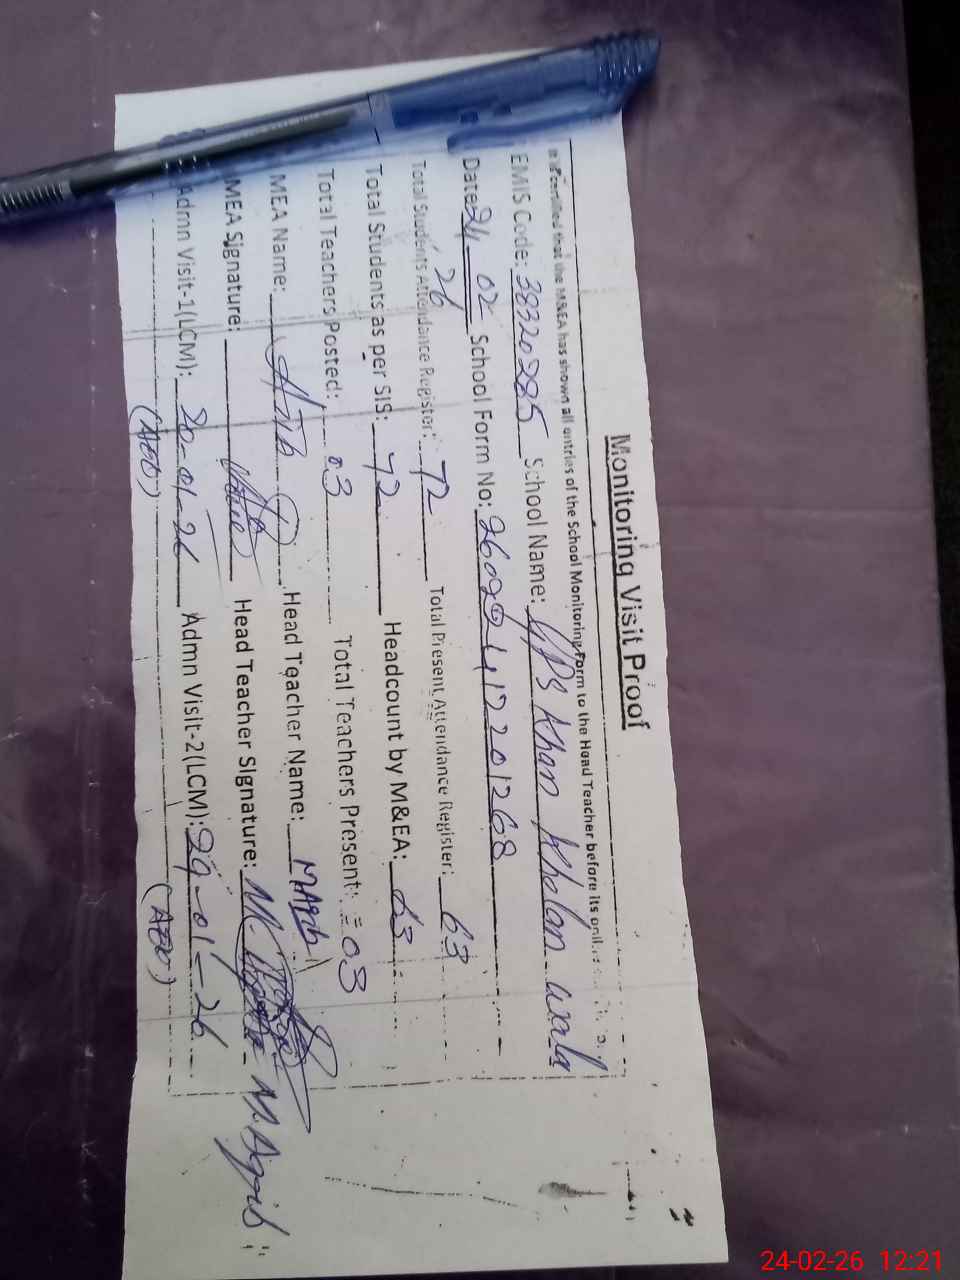 Monitoring Visit Proof
It is Certified that the M&EA has shown all entries of the School Monitoring Form to the Head Teacher before its
EMIS Code: 38320285 School Name: GPS Khan Khalan wala
Date: 24 02 26 School Form No:
Total Students Attendance Register: 72 Total Present, Attendance Register: 63
Total Students as per SIS: 72 Headcount by M&EA: 63
Total Teachers Posted: 03 Total Teachers Present: = 03
MEA Name: Head Teacher Name: M.Aqib
MEA Signature: Head Teacher Signature: M. Aqib
Admn Visit-1(LCM): 20-01-26 Admn Visit-2(LCM): 29-01-26
(AEO) (AEO)
24-02-26 12:21